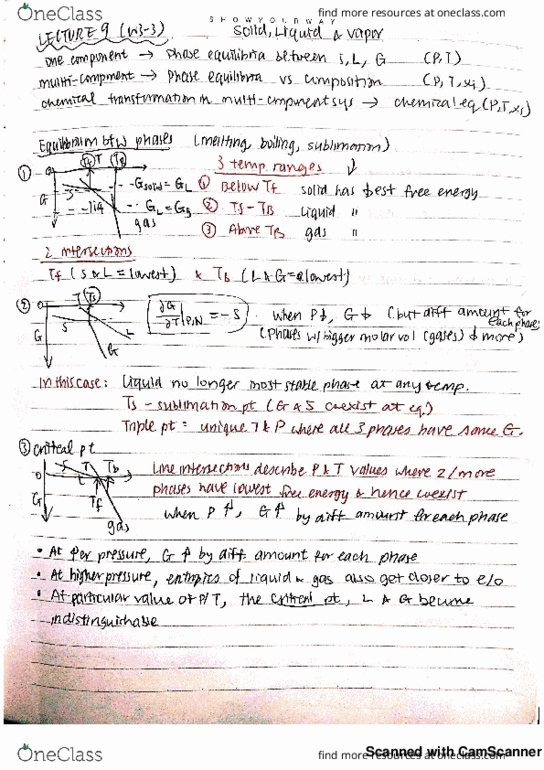 SHOWYOURWAY
find more resources at oneclass.com
OneClass
LECTURE 9 (W3-3)
Solid, Liquid & Vapor
one component → Phase equilibria between S, L, G (P,T)
multi-component → Phase equilibria vs composition (P, T, xi)
chemical transformation in multi-component sys → chemical eq (P,T,xi)
Equilibrium btw phases (melting, boiling, sublimation)
3 temp ranges ↓
① Below Tf solid has best free energy
② Tf - TB liquid "
③ Above TB gas "
①
0
Tf T TB
G
S
liq
gas
Gsolid = GL
GL = Gg
2 intersections
Tf (S & L = lowest) & TB (L & G = lowest)
②
0
T Ts
G
S
L
G
∂G/∂T|P,N = -S
when P↓, G↓ (but diff amount for each phase)
(Phases w/ bigger molar vol (gases) ↓ more)
In this case: Liquid no longer most stable phase at any temp.
Ts - sublimation pt (G & S coexist at eq.)
Triple pt = unique T & P where all 3 phases have same G.
③ critical pt
0
S T Tb
L
G
Tf
gas
Line intersections describe P & T values where 2/more
phases have lowest free energy & hence coexist
when P↑, G↑ by diff amount for each phase
• At pressure, G↑ by diff amount for each phase
• At higher pressure, entropies of liquid & gas also get closer to e/o
• At particular value of P/T, the critical pt, L & G become
indistinguishable
OneClass
find more resources at oneclass.com
Scanned with CamScanner